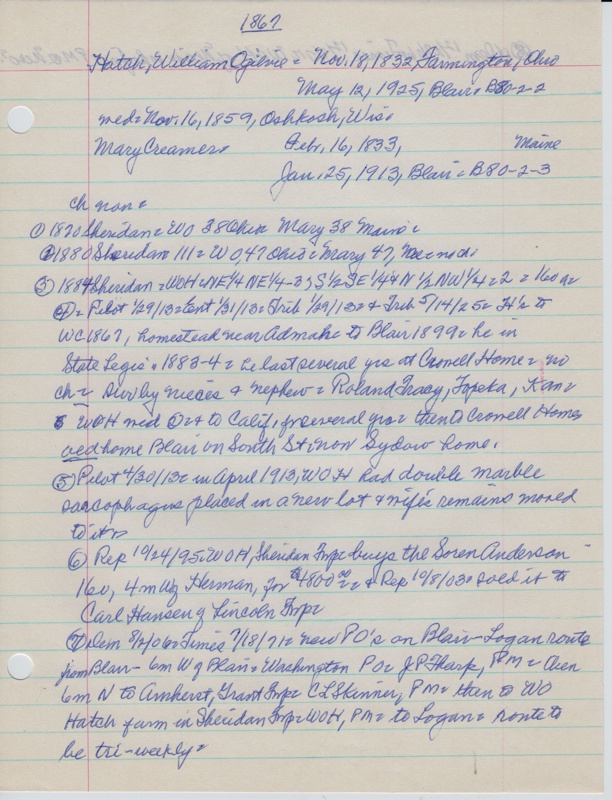 1867
Hatch, William Ogilvie = Nov. 18, 1832, Farmington, Ohio
May 12, 1925, Blair = B80-2-2
med = Nov. 16, 1859, Oshkosh, Wis.
Mary Creamer = Febr. 16, 1833, Maine
Jan. 25, 1913, Blair = B80-2-3
ch none
① 1870 Sheridan = WO 38 Ohio Mary 38 Maine =
② 1880 Sheridan 111 = WO, 47 Ohio = Mary 47, Me = no ch
③ 1884 Sheridan = WOH = NE 1/4 NE 1/4 - 3; S 1/2 SE 1/4 & N 1/2 NW 1/4 = 2 = 160 a =
④ = Pilot 1/29/13 = Ent 1/31/13 = Trib 1/29/13 = & Trib 5/14/25 = H's to
WC 1867, homestead near Admah = to Blair 1899 = he in
State Legis. 1883-4 = he last several yrs at Crowell Home = no
ch = Surv by nieces & nephew = Roland Tracy, Topeka, Kan =
WOH med & to Calif, for several yrs = then to Crowell Home,
oed home Blair on South St = now Sydow home.
⑤ Pilot 4/30/13 = in April 1913, WOH had double marble
sarcophagus placed in a new lot & wife's remains moved
to it =
⑥ Rep 10/24/95 = WOH, Sheridan Twp = buys the Soren Anderson
160, 4m W of Herman, for $4800.00 = & Rep 10/8/03 = sold it to
Carl Hansen of Lincoln Twp =
⑦ Times 7/18/71 = new PO's on Blair-Logan route
from Blair - 6m W of Blair = Washington PO = J P Tharp, PM = then
6m N to Amherst, Grant Twp = C L Skinner, PM = then to WO
Hatch farm in Sheridan Twp = WOH, PM = to Logan = route to
be tri-weekly =